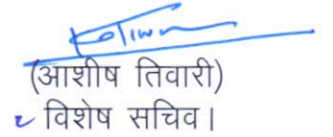 (आशीष तिवारी)
विशेष सचिव।